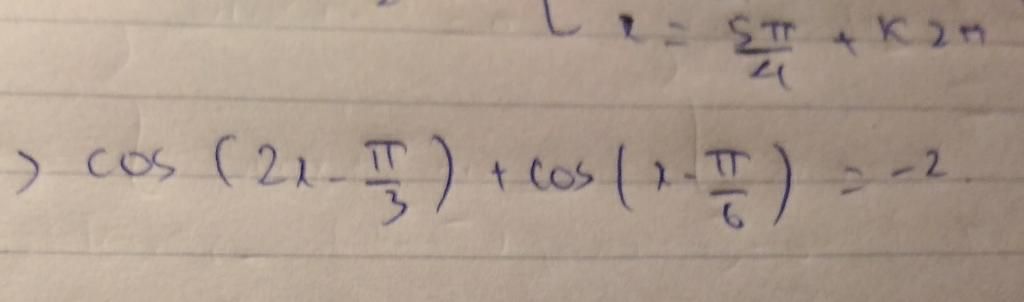 x = 5π/4 + K2π
> cos (2x - π/3) + cos(x - π/6) = -2.